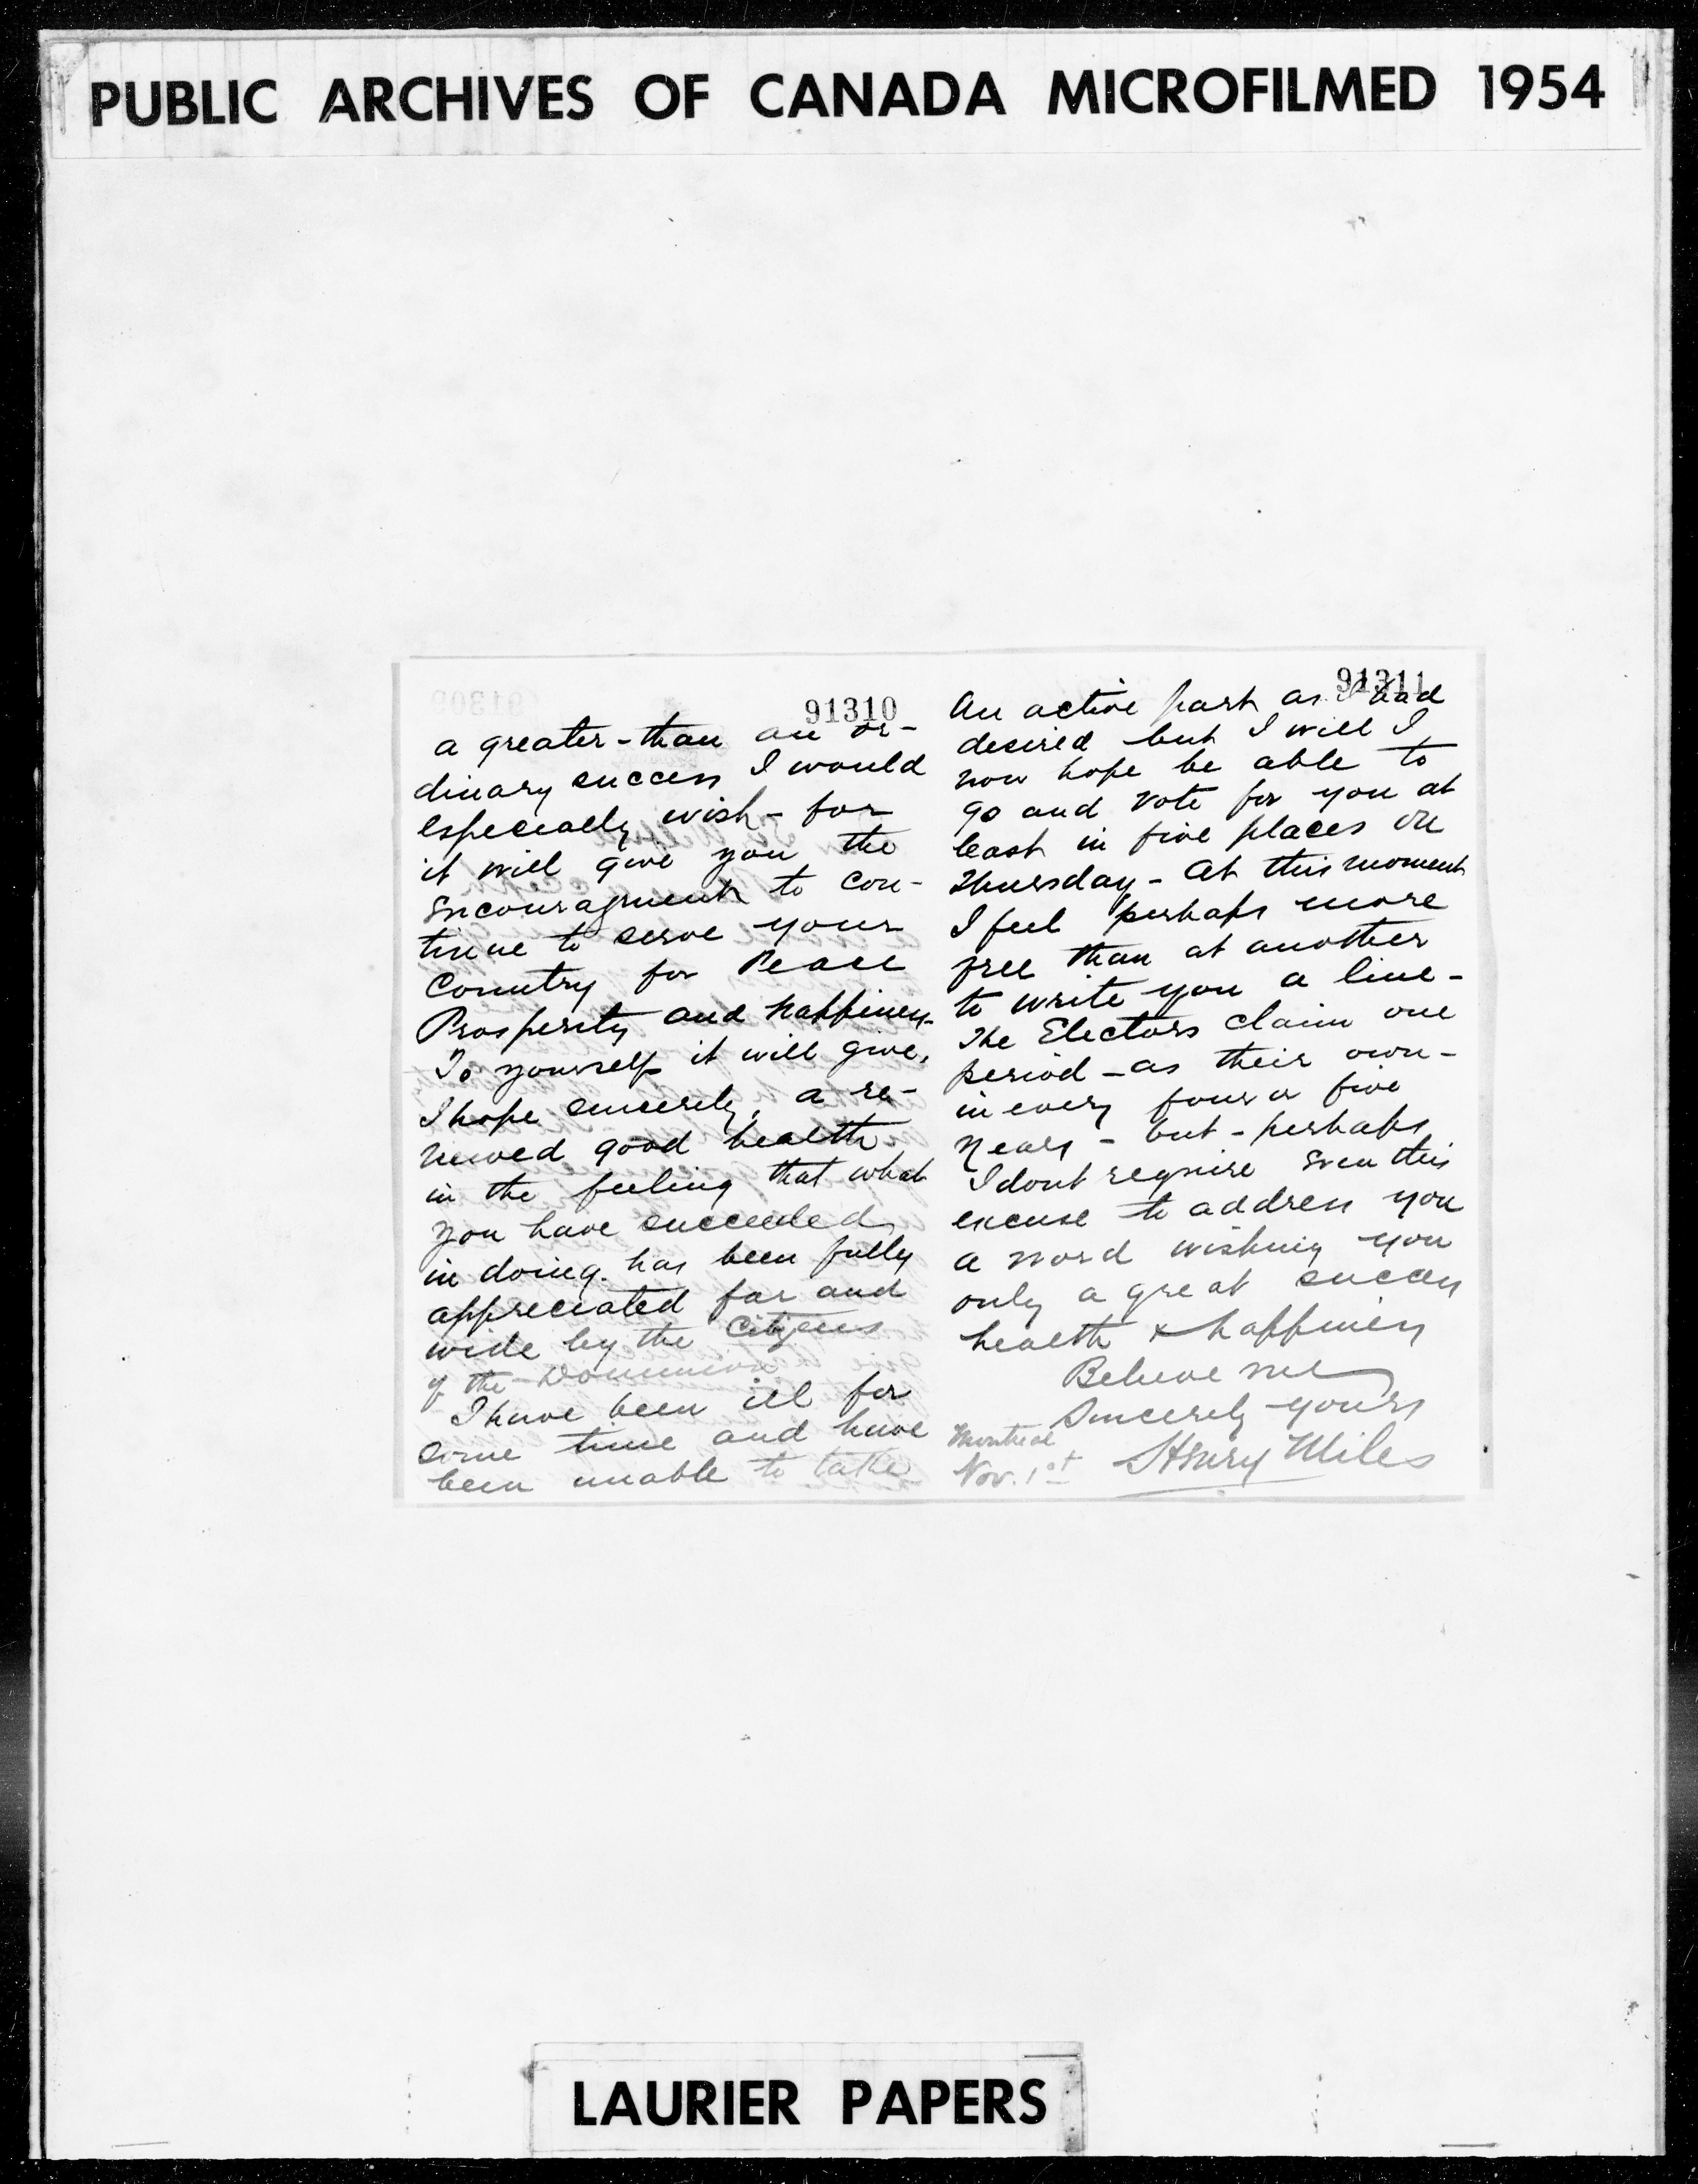 PUBLIC ARCHIVES OF CANADA MICROFILMED 1954
91310
a greater - than an or-
dinary success I would
especially wish - for
it will give you the
Encouragment to con-
tinue to serve your
Country for Peace
Prosperity and happiness.
To yourself it will give,
I hope sincerely, a re-
newed good health
in the feeling that what
you have succeeded
in doing. has been fully
appreciated far and
wide by the Citizens
of the Dominion
I have been ill for
some time and have
been unable to take
91311
An active part as I had
desired but I will I
now hope be able to
go and vote for you at
least in five places on
Thursday - At this moment
I feel perhaps more
free than at another
to write you a line -
The Electors claim one
period - as their own -
in every four or five
years - but - perhaps
I dont require Even this
excuse to address you
a word wishing you
only a great success
health & happiness
Believe me
Sincerely yours
Montreal
Nov. 1st Henry Miles
LAURIER PAPERS